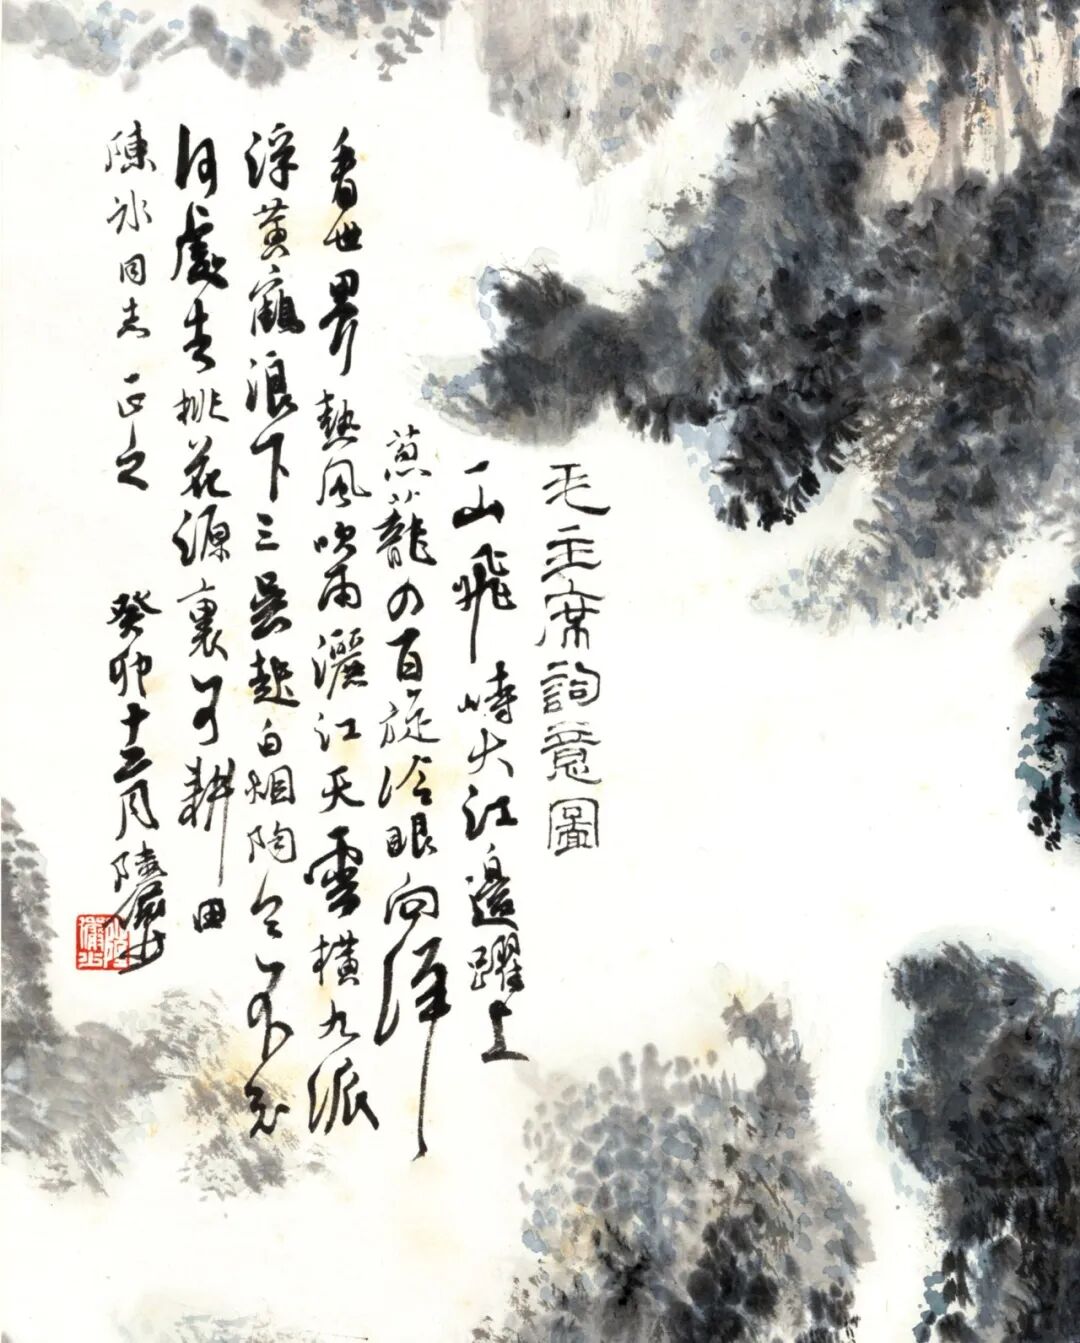 毛主席詞意圖
一山飛峙大江邊躍上
蔥蘢四百旋冷眼向洋
看世界熱風吹雨灑江天雲橫九派
浮黃鶴浪下三吳起白烟陶令不知
何處去桃花源裏可耕田
陳冰同志正之 癸卯十二月陸儼少
陸儼少